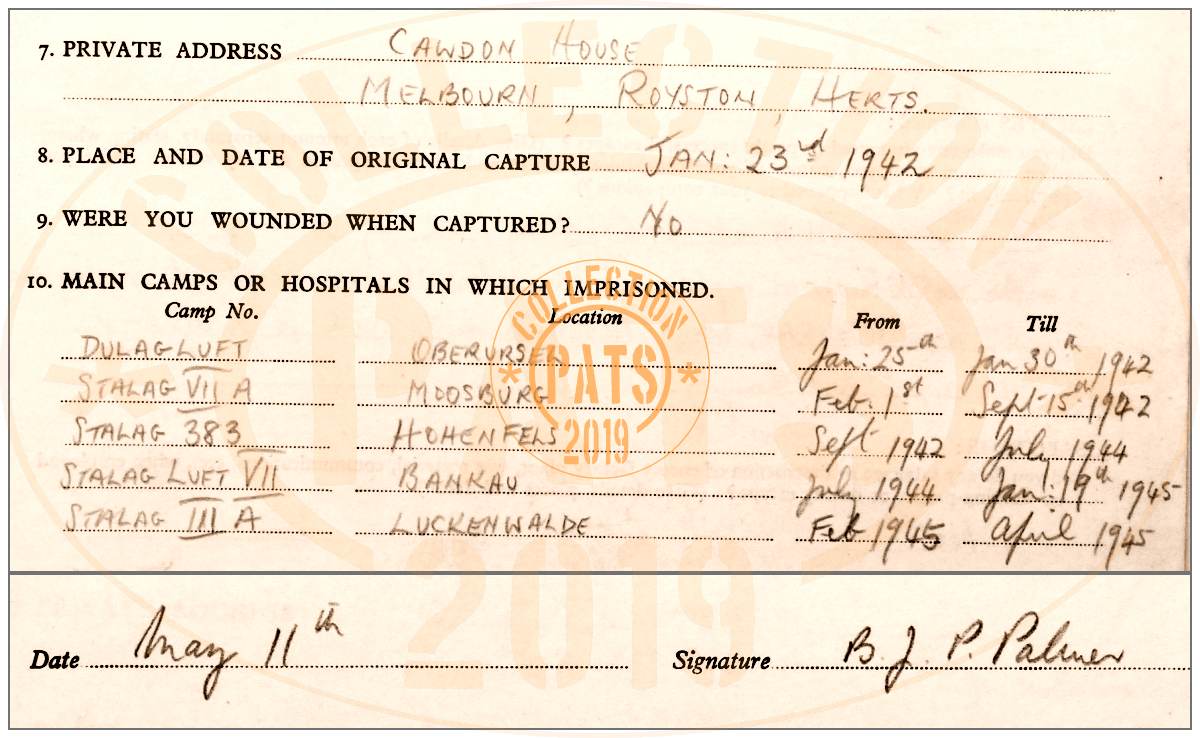 7. PRIVATE ADDRESS CAWDON HOUSE
MELBOURN, ROYSTON, HERTS.
8. PLACE AND DATE OF ORIGINAL CAPTURE JAN: 23rd 1942
9. WERE YOU WOUNDED WHEN CAPTURED? NO
10. MAIN CAMPS OR HOSPITALS IN WHICH IMPRISONED.
Camp No. Location From Till
DULAG LUFT OBERURSEL Jan: 25th Jan 30th 1942
STALAG VII A MOOSBURG Feb. 1st Sept 15th 1942
STALAG 383 HOHENFELS Sept 1942 July 1944
STALAG LUFT VII BANKAU July 1944 Jan: 19th 1945
STALAG III A LUCKENWALDE Feb 1945 April 1945
COLLECTION
PATS
2019
Date May 11th Signature B. J. P. Palmer